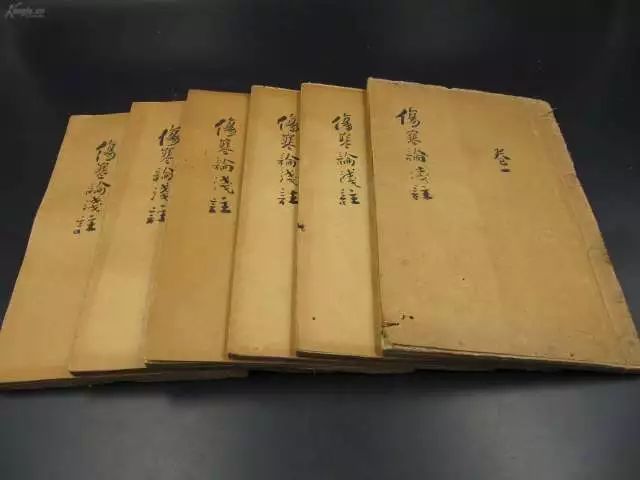 傷寒論淺註
傷寒論淺註
傷寒論淺註
傷寒論淺註
傷寒論淺註
傷寒論淺註
卷一